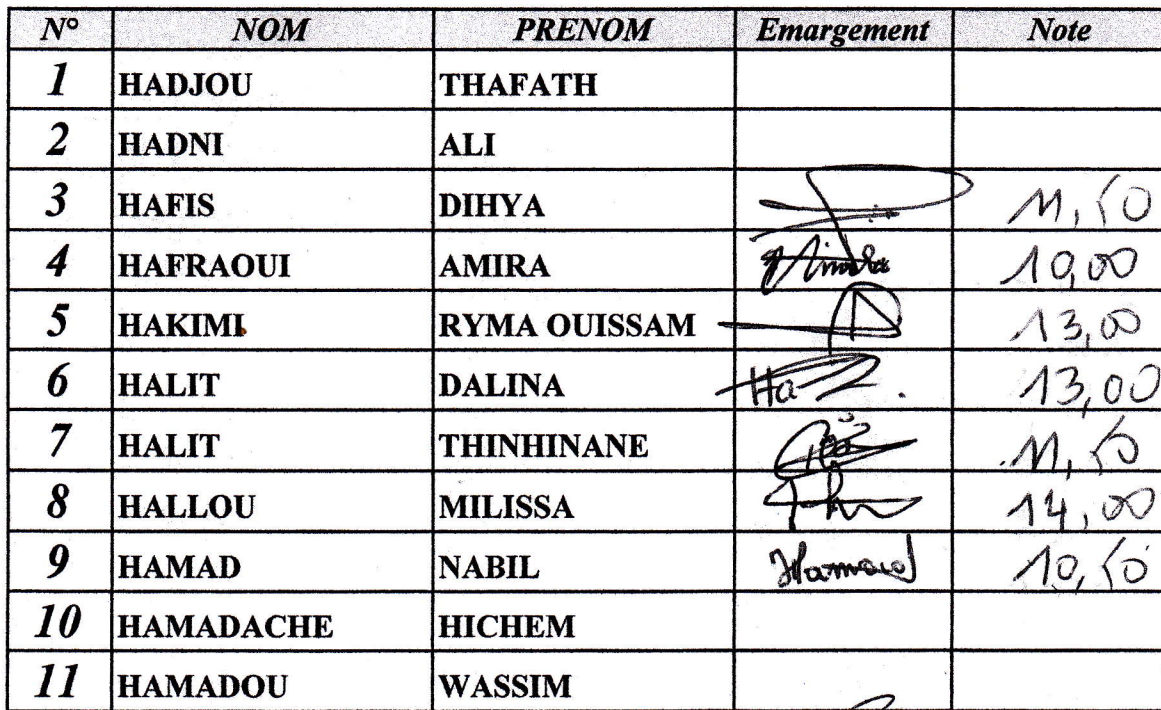 N° NOM PRENOM Emargement Note
1 HADJOU THAFATH
2 HADNI ALI
3 HAFIS DIHYA 11,50
4 HAFRAOUI AMIRA 10,00
5 HAKIMI RYMA OUISSAM 13,00
6 HALIT DALINA Ha 13,00
7 HALIT THINHINANE 11,50
8 HALLOU MILISSA 14,00
9 HAMAD NABIL Hamad 10,50
10 HAMADACHE HICHEM
11 HAMADOU WASSIM